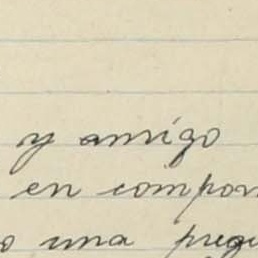 y amigo
en compon
o una pregu